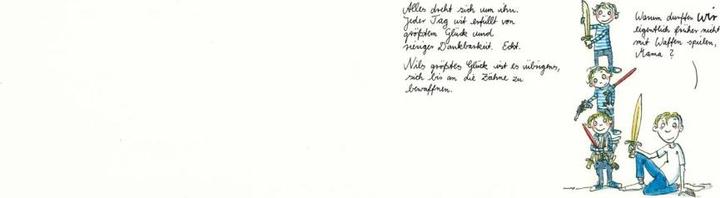 Alles dreht sich um ihn.
Jeder Tag ist erfüllt von
größtem Glück und
riesiger Dankbarkeit. Echt.
Nils größtes Glück ist es übrigens,
sich bis an die Zähne zu
bewaffnen.
Warum durften wir
eigentlich früher nicht
mit Waffen spielen,
Mama?